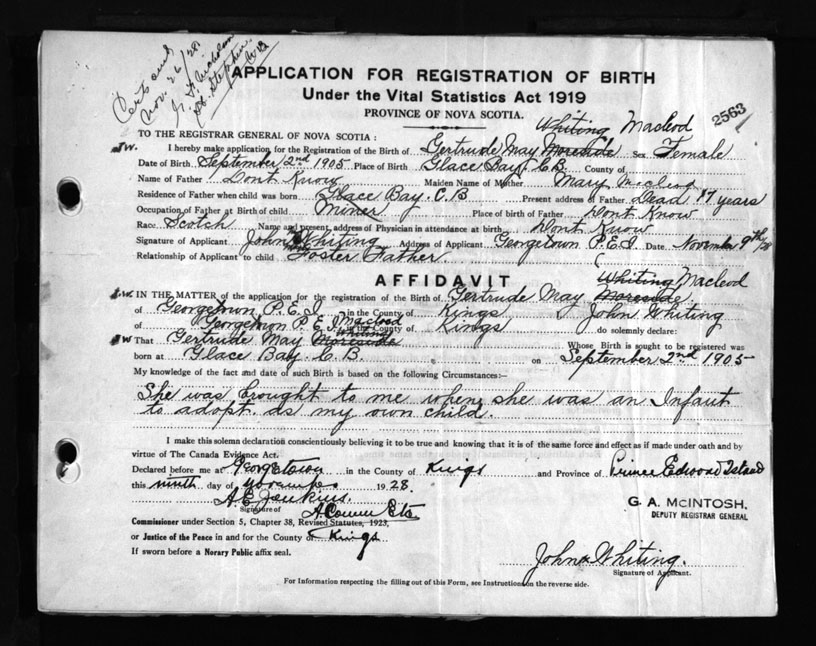 Cert and
Nov. 26/28
APPLICATION FOR REGISTRATION OF BIRTH
Under the Vital Statistics Act 1919
PROVINCE OF NOVA SCOTIA.
2563
TO THE REGISTRAR GENERAL OF NOVA SCOTIA:
Whiting Macleod
J.W. I hereby make application for the Registration of the Birth of Gertrude May Moreside Sex Female
Date of Birth September 2nd 1905 Place of Birth Glace Bay, C.B. County of
Name of Father Dont Know Maiden Name of Mother Mary Mcleod
Residence of Father when child was born Glace Bay. C B Present address of Father Dead 17 years
Occupation of Father at Birth of child Miner Place of birth of Father Dont Know
Race Scotch Name and present address of Physician in attendance at birth Dont Know
Signature of Applicant John Whiting Address of Applicant Georgetown P.E.I. Date November 9th/28
Relationship of Applicant to child Foster Father
AFFIDAVIT
Whiting Macleod
J.W. IN THE MATTER of the application for the registration of the Birth of Gertrude May Moreside
of Georgetown P.E.I. in the County of Kings I, John Whiting
of Georgetown P.E.I. in the County of Kings do solemnly declare:
Macleod Whiting
JW That Gertrude May Moreside Whose Birth is sought to be registered was
born at Glace Bay. C.B. on September 2nd 1905
My knowledge of the fact and date of such Birth is based on the following Circumstances:—
She was brought to me when she was an Infant
to adopt. as my own child.
I make this solemn declaration conscientiously believing it to be true and knowing that it is of the same force and effect as if made under oath and by
virtue of The Canada Evidence Act.
Declared before me at Georgetown in the County of Kings and Province of Prince Edward Island
this ninth day of November 1928.
A E Jenkins
Signature of A Comm Etc
G. A. McINTOSH,
DEPUTY REGISTRAR GENERAL
Commissioner under Section 5, Chapter 38, Revised Statutes, 1923,
or Justice of the Peace in and for the County of Kings
If sworn before a Norary Public affix seal.
John Whiting.
Signature of Applicant.
For Information respecting the filling out of this Form, see Instructions on the reverse side.